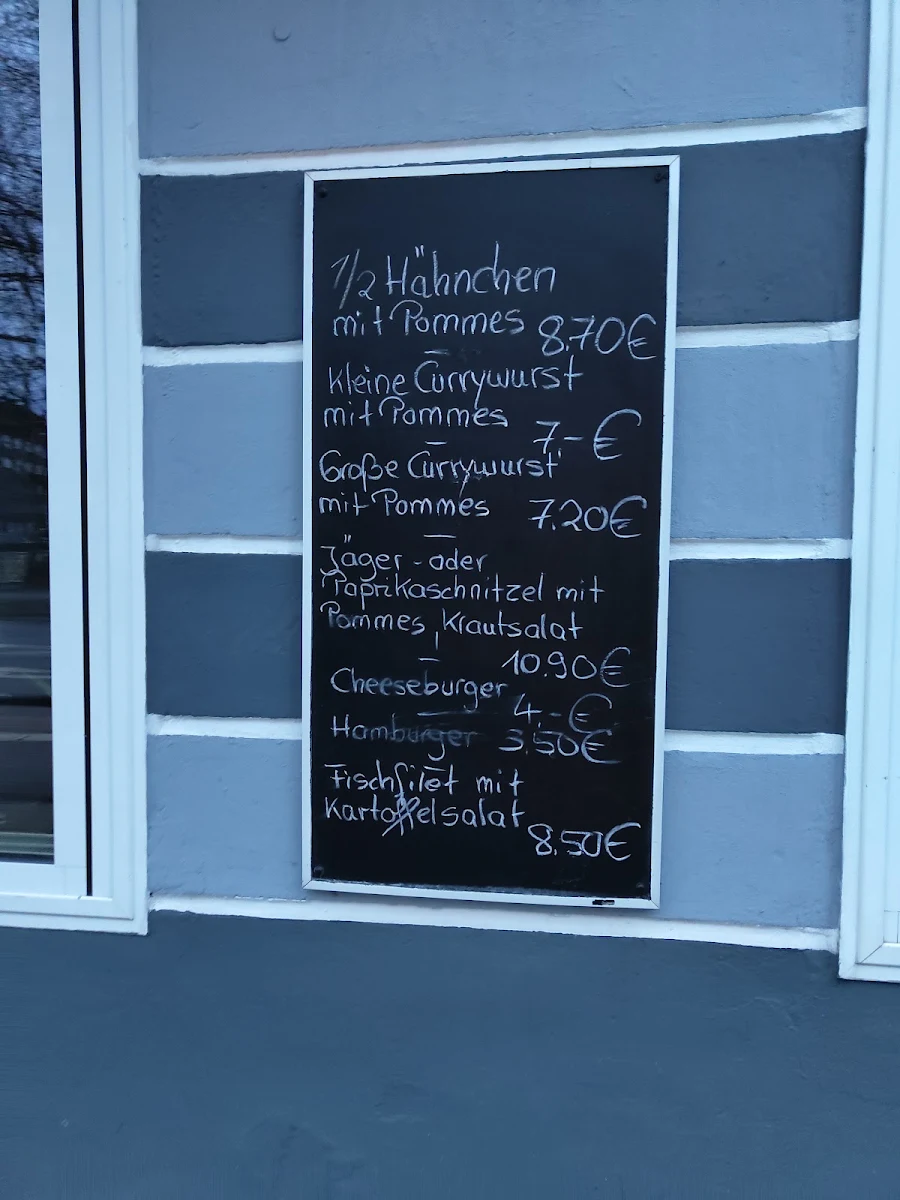 1/2 Hähnchen
mit Pommes 8.70€
–
kleine Currywurst
mit Pommes
7-€
–
Große Currywurst
mit Pommes 7.20€
–
Jäger - oder
Paprikaschnitzel mit
Pommes, Krautsalat
10.90€
–
Cheeseburger
4.-€
Hamburger 3.50€
Fischfilet mit
Kartoffelsalat
8.50€